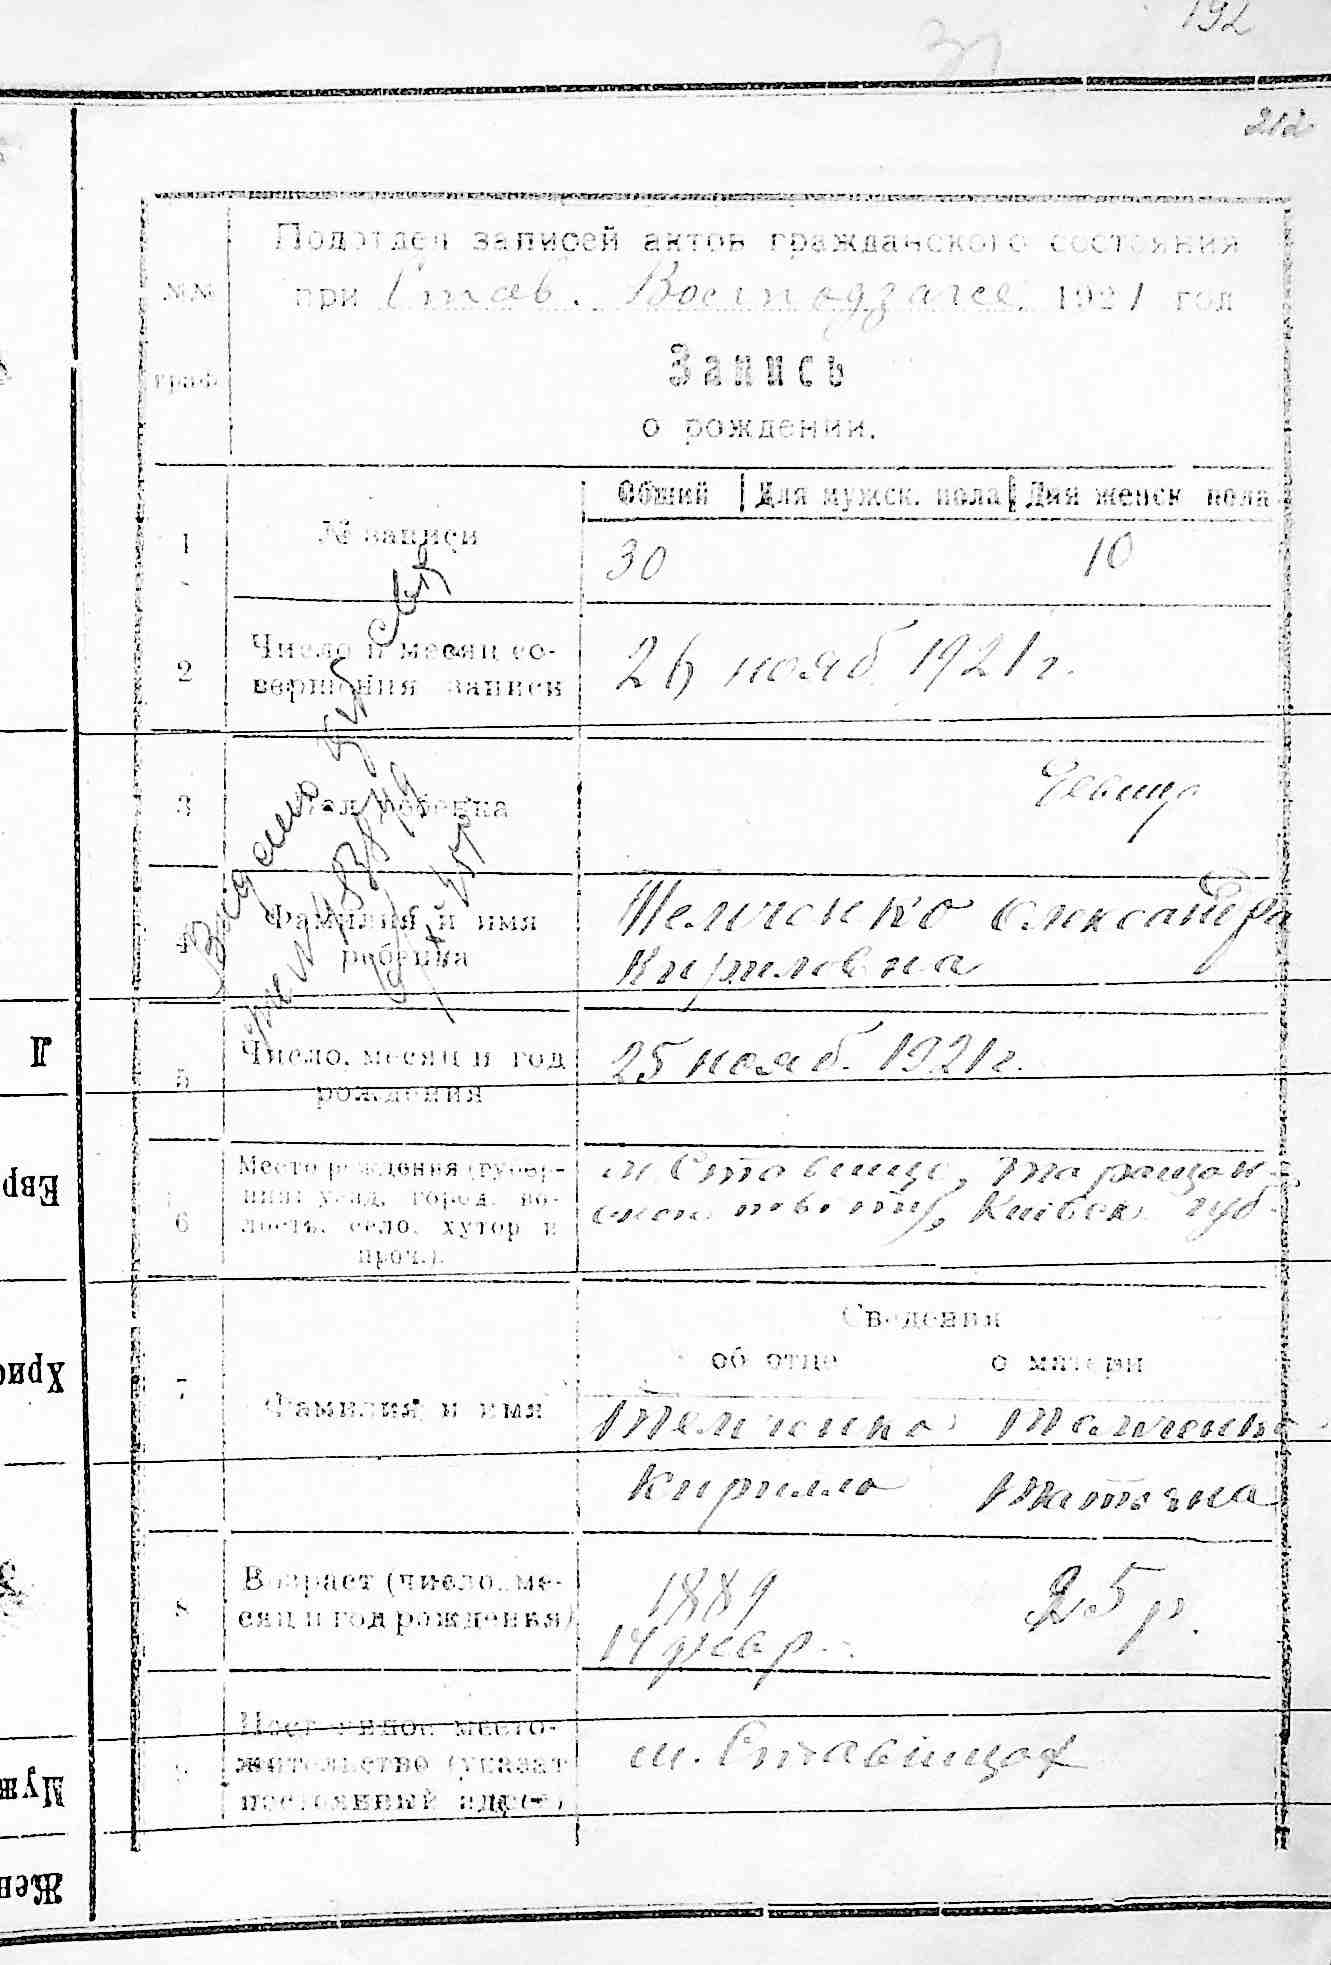 192
212
№№
граф
Подотдел записей актов гражданского состояния
при Став. 1921 год
Запись
о рождении.
Общий Для мужск. пола Для женск. пола
1 № записи 30 10
2 Число и месяц со-
вершения записи
26 нояб 1921 г.
3 Пол ребенка
4 Фамилия и имя
ребенка
Теличенко Александра
Кириловна
5 Число, месяц и год
рождения
25 нояб. 1921 г.
6 Место рождения (губер-
ния, уезд, город, во-
лость, село, хутор и
проч.).
м. Ставище,
Київск. губ.
Сведения
об отце о матери
7 Фамилия и имя
Теличенко Теличенко
Кирилло Татяна
8 Возраст (число, ме-
сяц и год рождения)
1889 25 р.
Постоянное место-
жительство (указат
постоянный адрес)
м. Ставищах
Д
Евр
Хрис
Муж
Жен